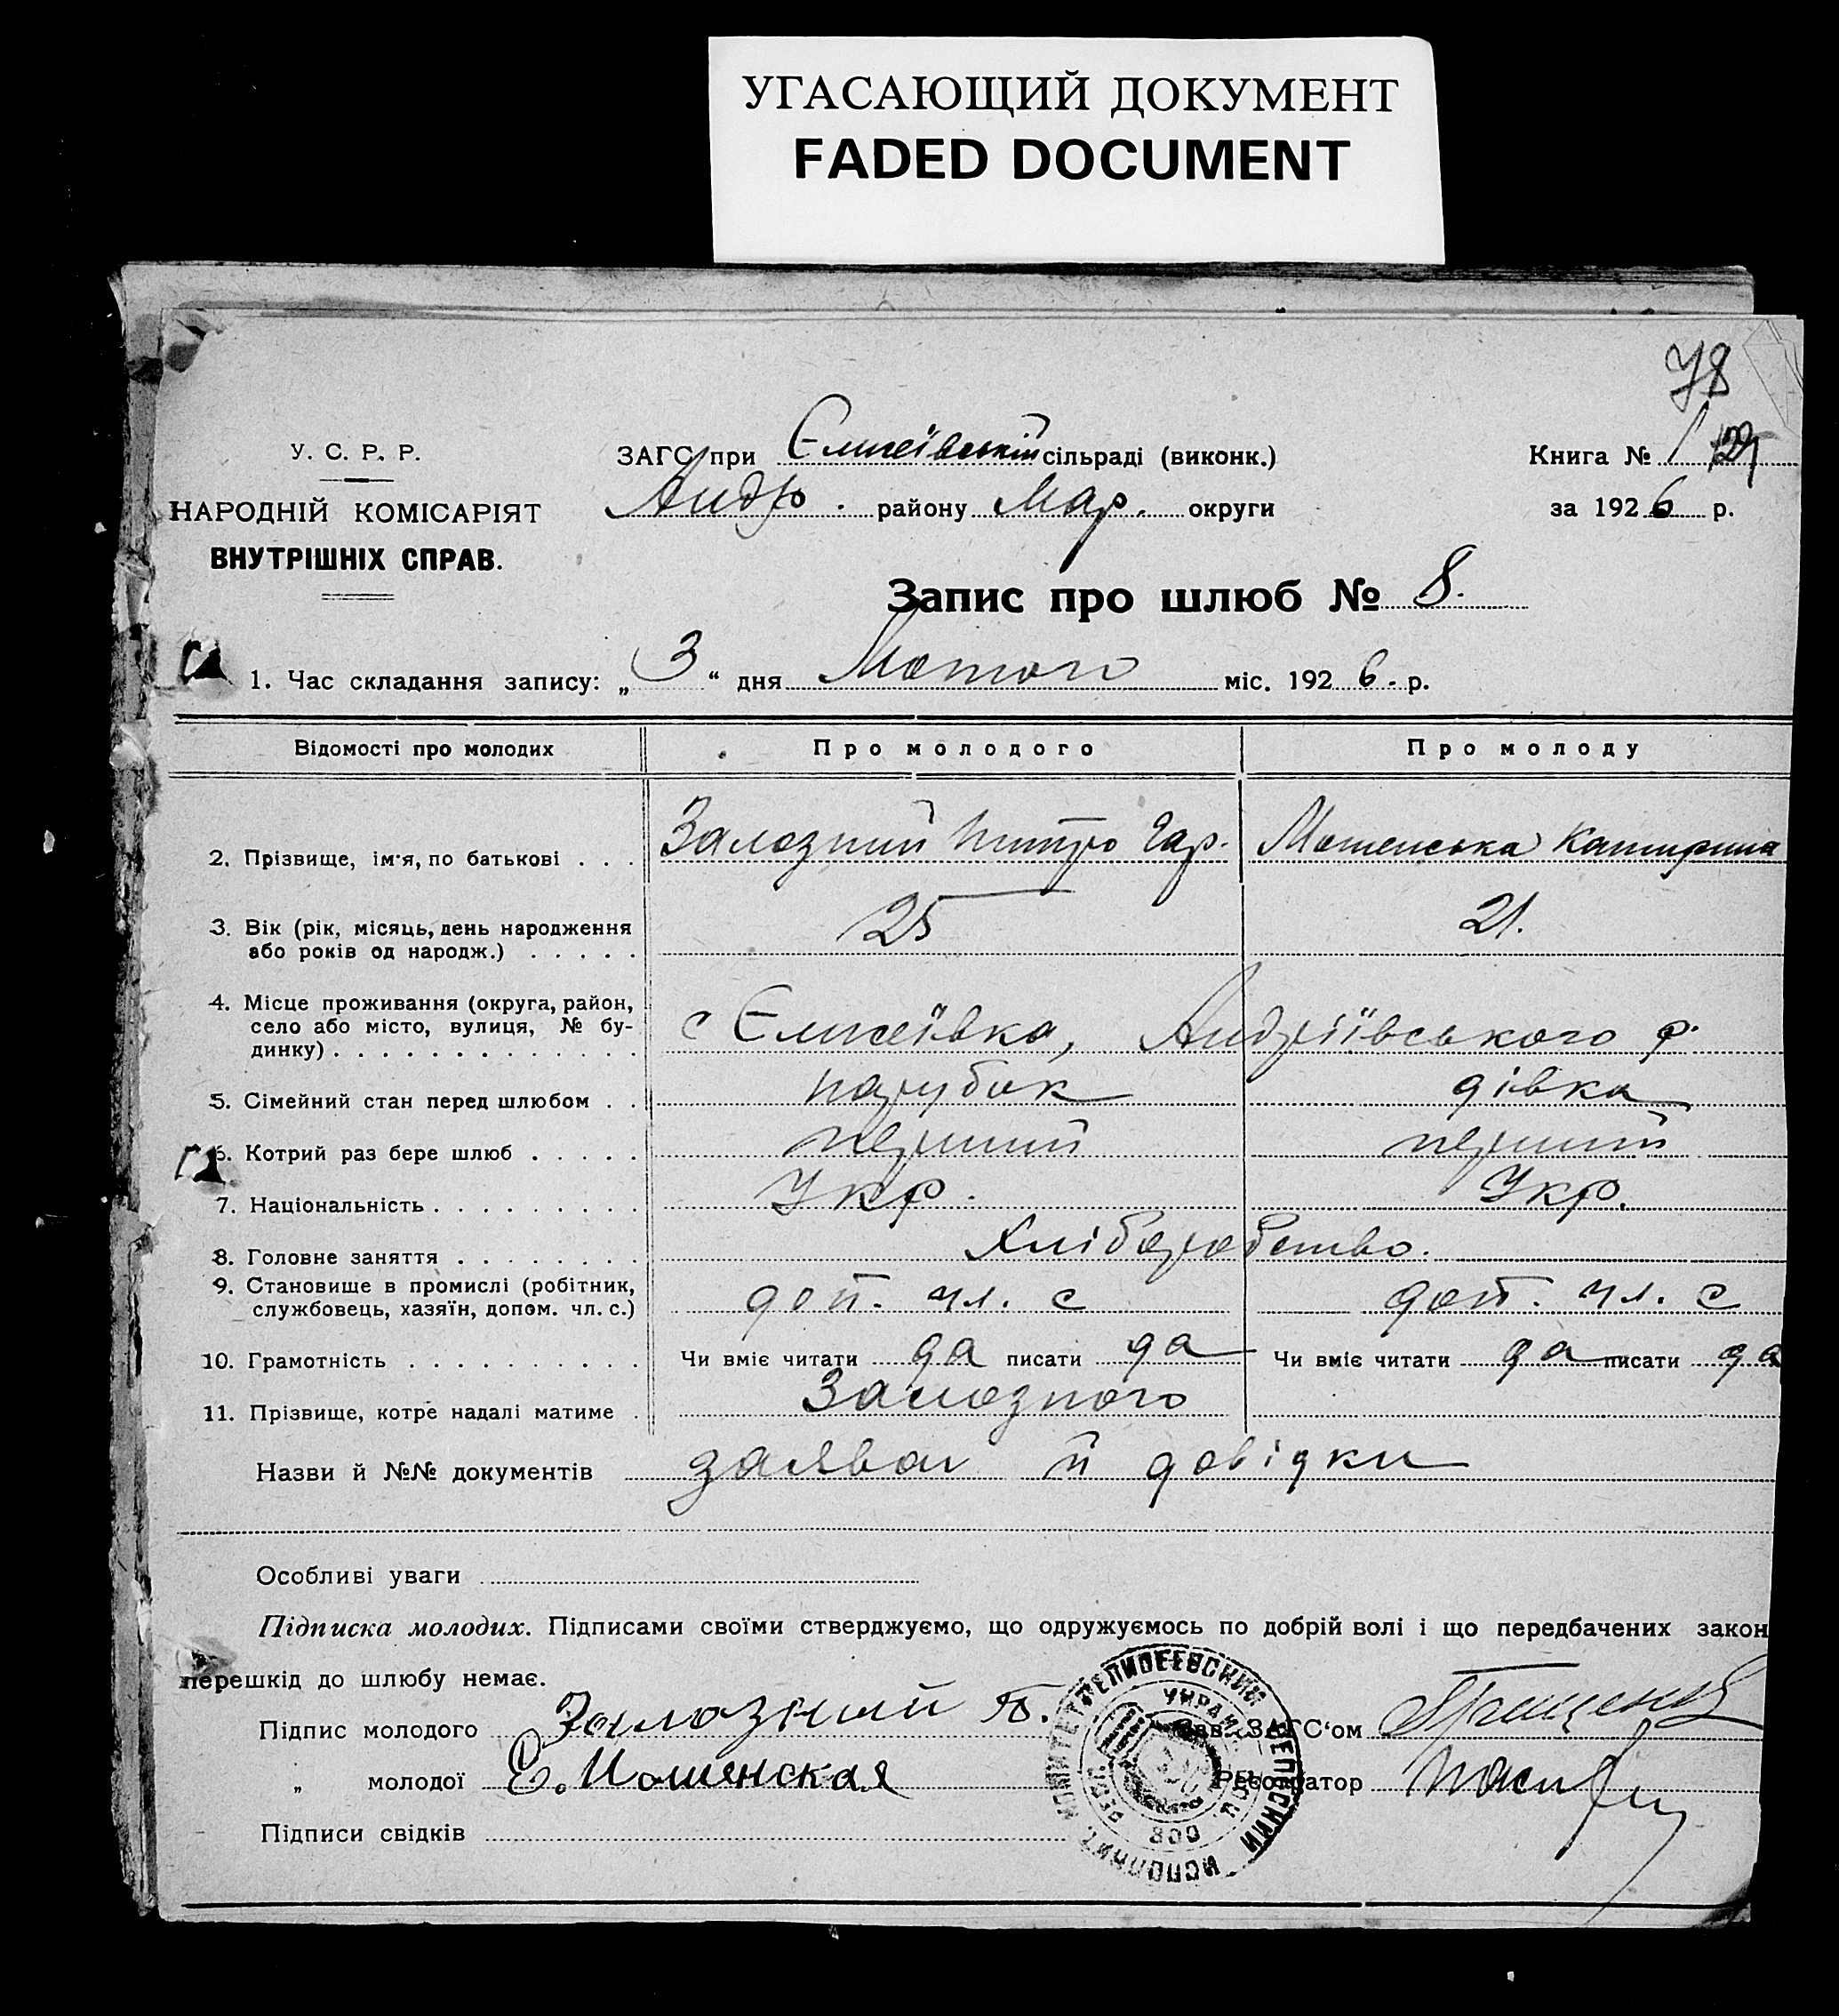 УГАСАЮЩИЙ ДОКУМЕНТ
FADED DOCUMENT
78
У. С. Р. Р.
НАРОДНІЙ КОМІСАРІЯТ
ВНУТРІШНІХ СПРАВ.
ЗАГС при Єлисеївській сільраді (виконк.)
Андр. району Мар. округи
Книга № 1
за 1926 р.
Запис про шлюб № 8.
1. Час складання запису: „ 3 “ дня Лютого міс. 1926. р.
Відомості про молодих
Про молодого
Про молоду
2. Прізвище, ім'я, по батькові . . .
Залозний
Катирина
3. Вік (рік, місяць, день народження
або років од народж.) . . . . .
25
21.
4. Місце проживання (округа, район,
село або місто, вулиця, № бу-
динку) . . . . . . . . . . . . .
с Єлисеївка, Андріївського р.
5. Сімейний стан перед шлюбом . .
парубок
дівка
6. Котрий раз бере шлюб . . . . .
перший
перший
7. Національність . . . . . . . . .
Укр.
Укр.
8. Головне заняття . . . . . . . .
Хліборобство.
9. Становище в промислі (робітник,
службовець, хазяїн, допом. чл. с.)
доп. чл. с
доп. чл. с
10. Грамотність . . . . . . . . . .
Чи вміє читати да писати да
Чи вміє читати да писати да
11. Прізвище, котре надалі матиме .
Залозного
Назви й №№ документів заява й довідки
Особливі уваги
Підписка молодих. Підписами своїми стверджуємо, що одружуємось по добрій волі і що передбачених закон
перешкід до шлюбу немає.
Підпис молодого Залозний
Зав. ЗАГС‘ом
„ молодої Е. Мошенская
Реєстратор
Підписи свідків